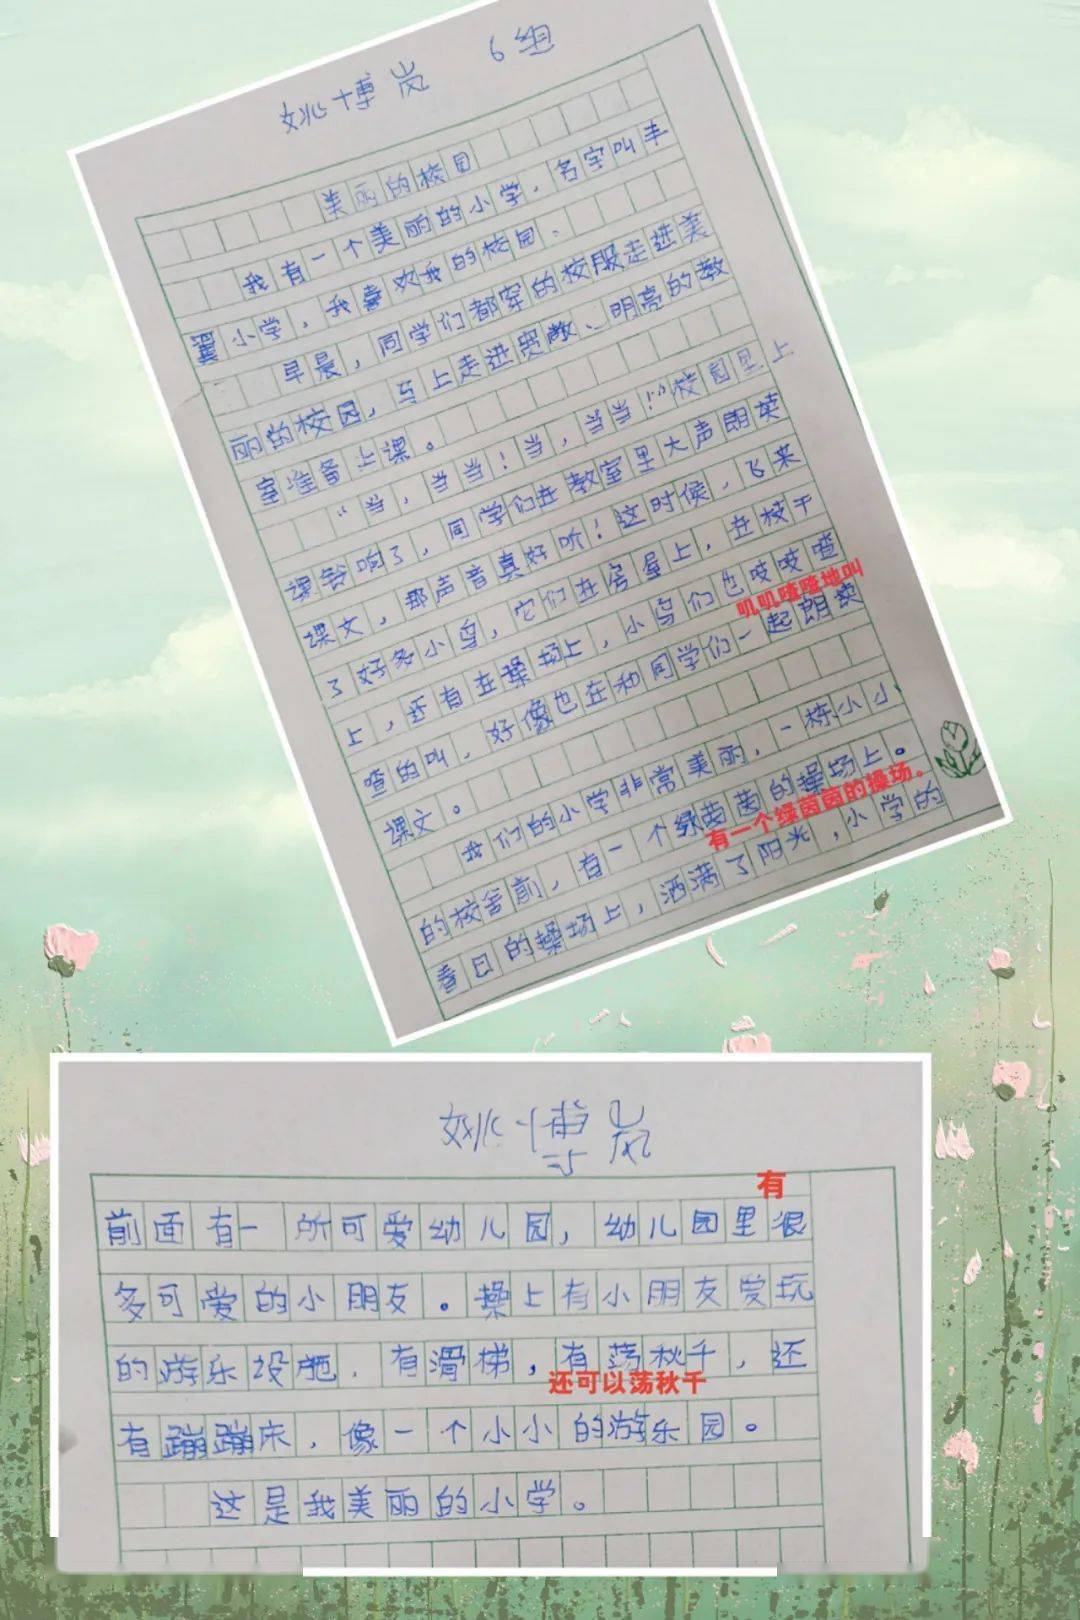 姚博岚 6组
美丽的校园
我有一个美丽的小学,名字叫丰
翼小学,我喜欢我的校园.
早晨,同学们都穿的校服走进美
丽的校园,马上走进宽敞、明亮的教
室准备上课。
“当,当当!当,当当!”校园里上
课铃响了,同学们在教室里大声朗读
课文,那声音真好听!这时候,飞来
了好多小鸟,它们在房屋上,在枝干
上,还有在操场上,小鸟们也吱吱喳
叽叽喳喳地叫
喳的叫,好像也在和同学们一起朗读
课文。
我们的小学非常美丽,一栋小小
的校舍前,有一个绿茵茵的操场上。
有一个绿茵茵的操场。
春日的操场上,洒满了阳光,小学的
姚博岚
有
前面有一所可爱幼儿园,幼儿园里很
多可爱的小朋友。操上有小朋友爱玩
的游乐设施,有滑梯,有荡秋千,还
还可以荡秋千
有蹦蹦床,像一个小小的游乐园。
这是我美丽的小学。